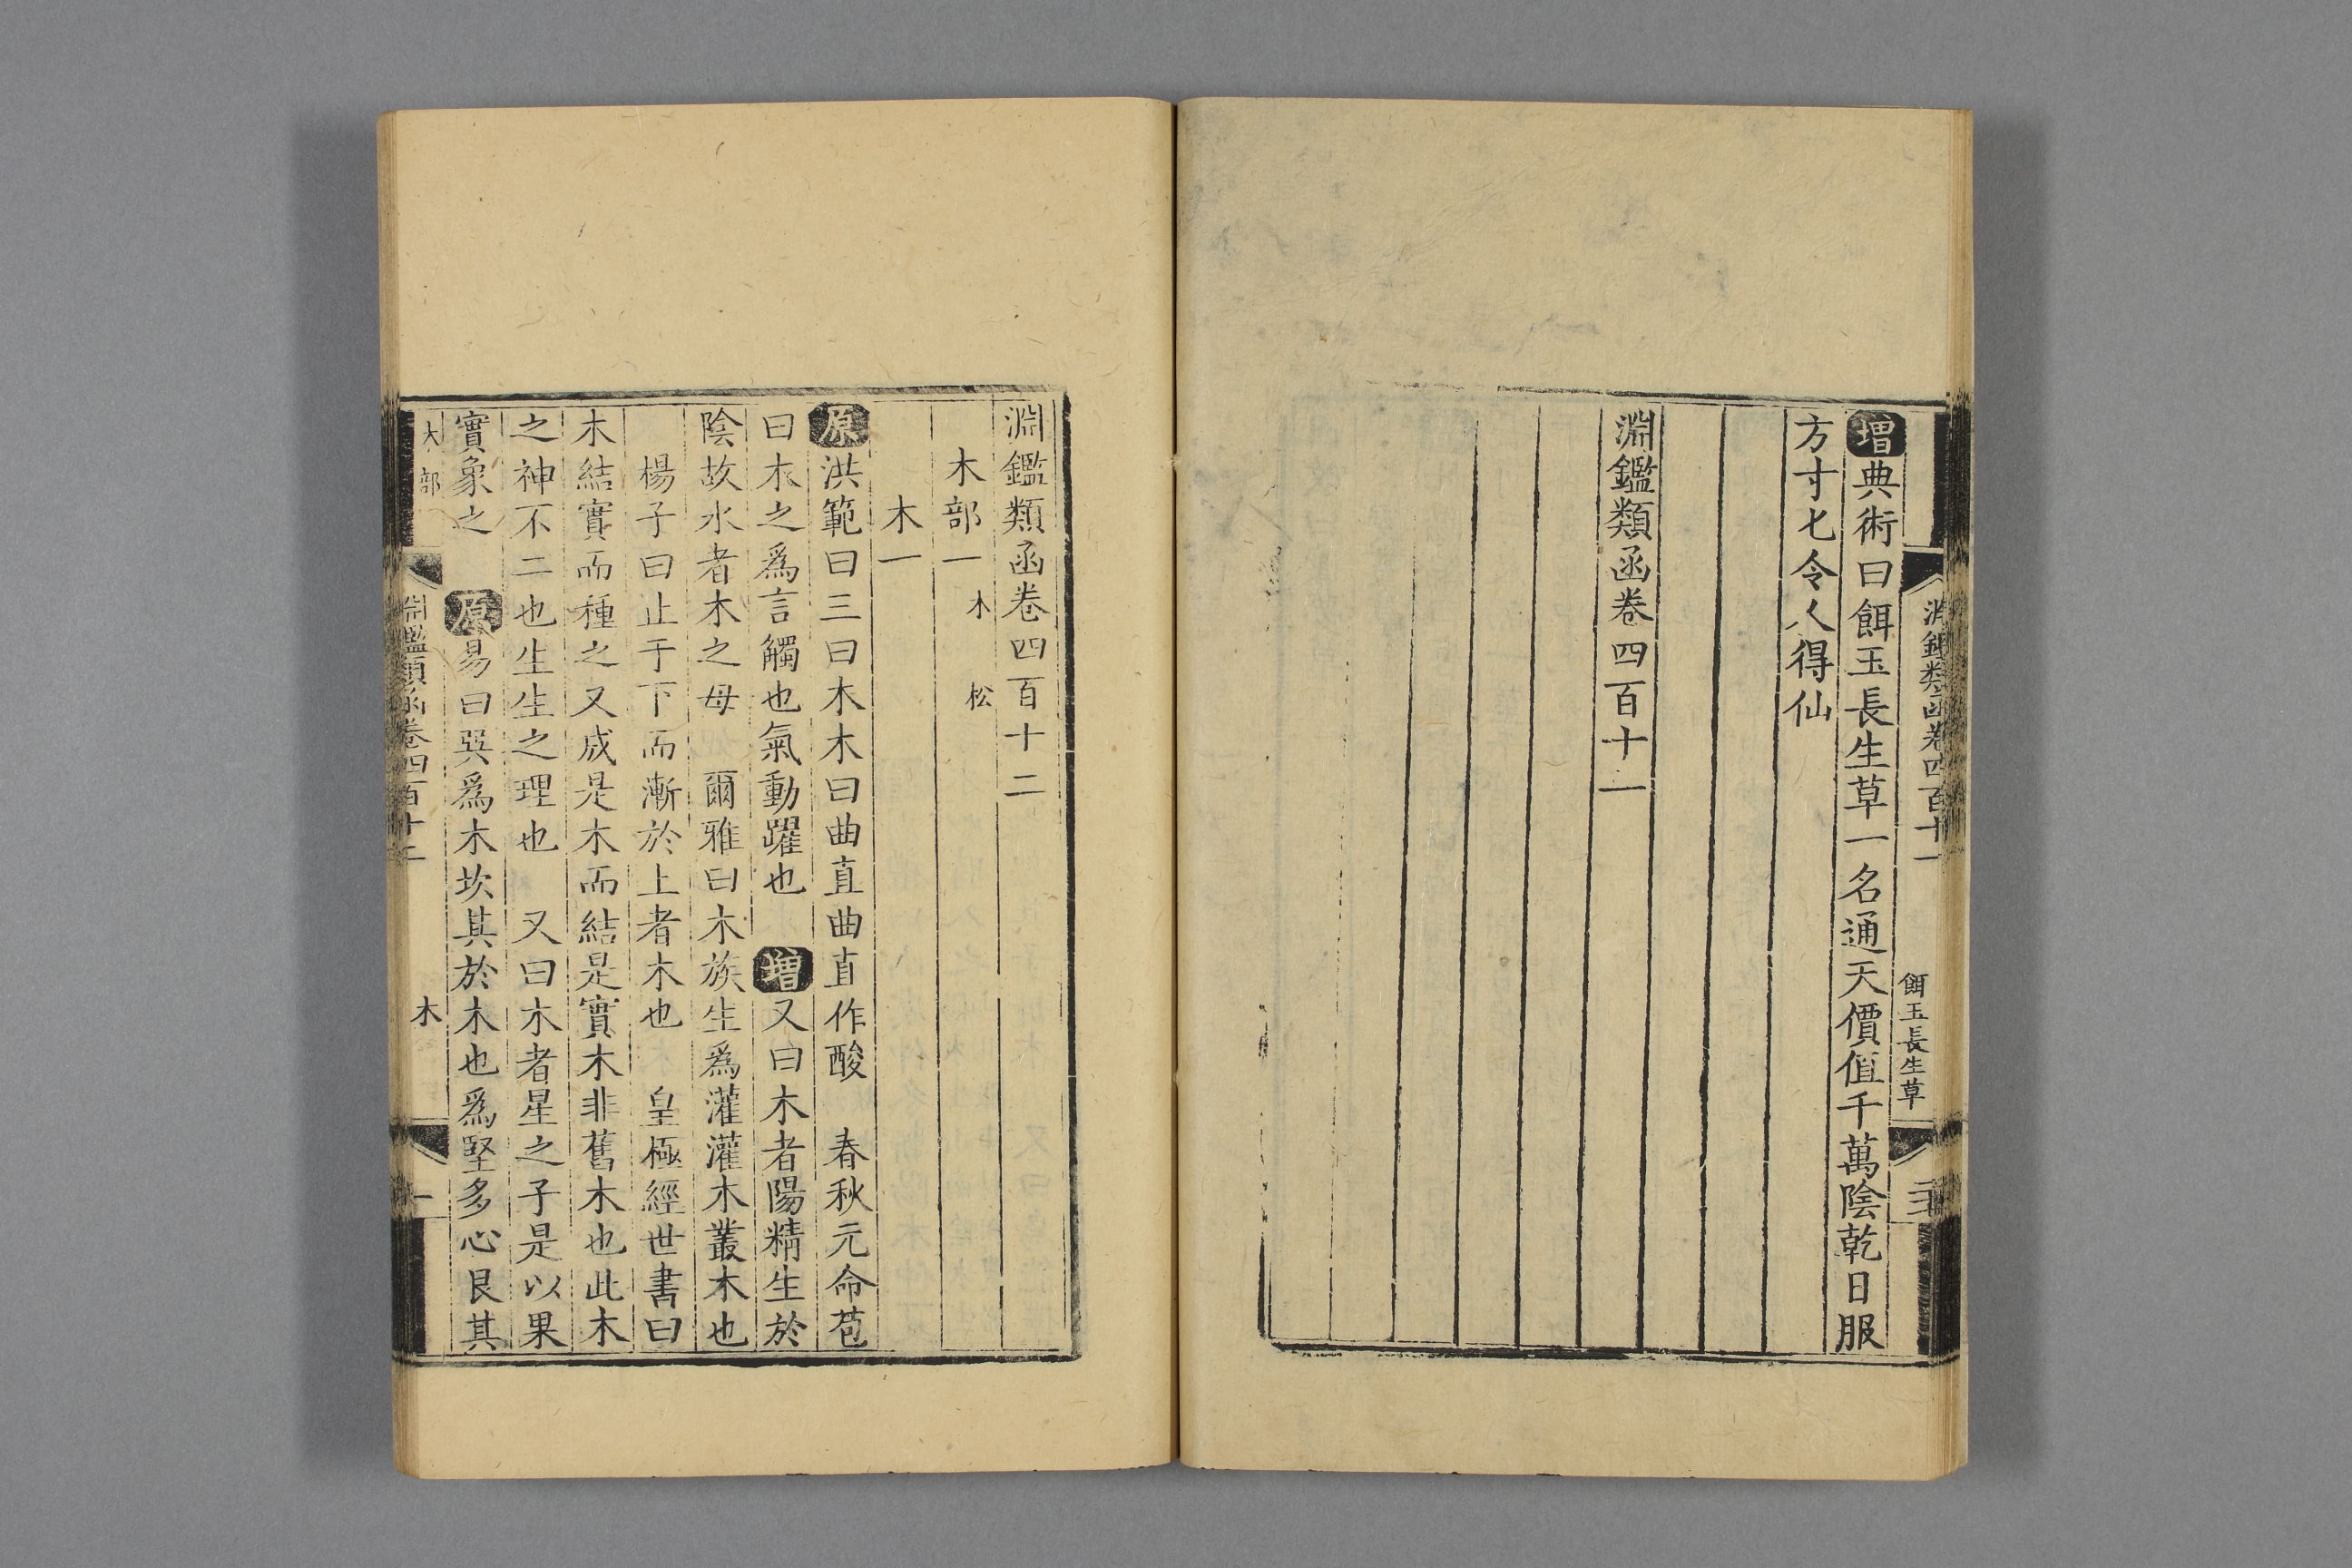 淵鑑類函卷四百十一
餌玉長生草
增典術曰餌玉長生草一名通天價值千萬陰乾日服
方寸七令人得仙
淵鑑類函卷四百十一
淵鑑類函卷四百十二
木部一 木 松
木一
原洪範曰三曰木木曰曲直曲直作酸 春秋元命苞
曰木之爲言觸也氣動躍也 增又曰木者陽精生於
陰故水者木之母 爾雅曰木族生爲灌灌木叢木也
楊子曰止于下而漸於上者木也 皇極經世書曰
木結實而種之又成是木而結是實木非舊木也此木
之神不二也生生之理也 又曰木者星之子是以果
實象之 原易曰巽爲木坎其於木也爲堅多心艮其
木部
淵鑑類函卷四百十二
木
一